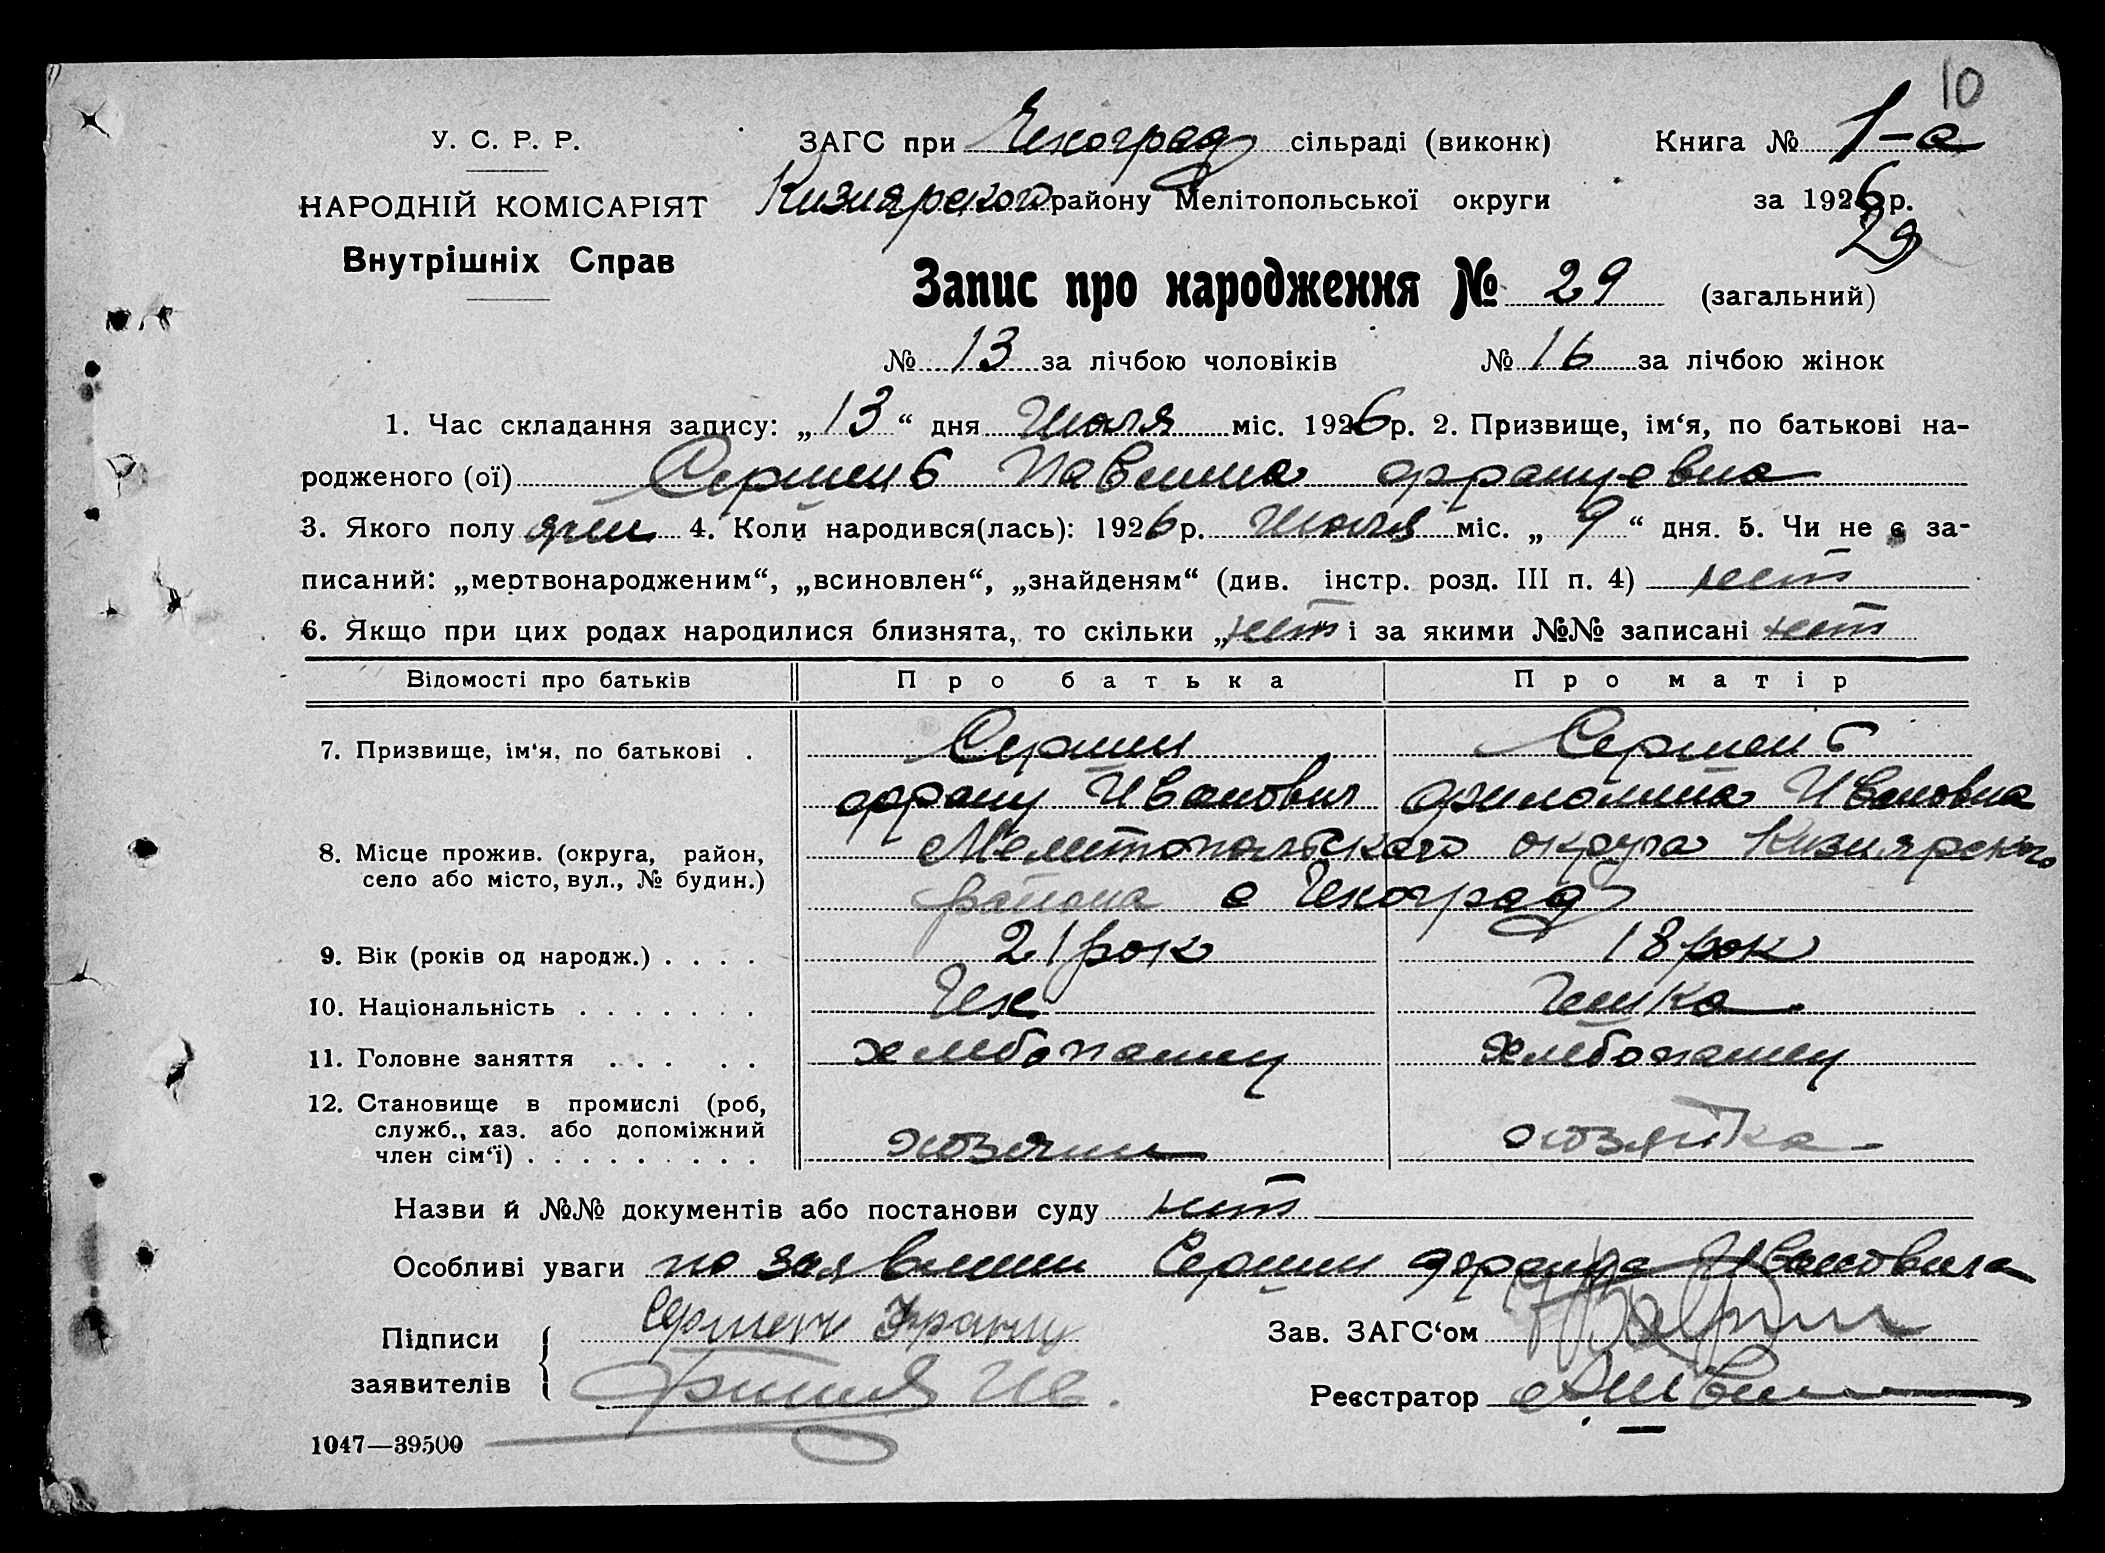 10
У. С. Р. Р.
ЗАГС при Чехоград сільраді (виконк)
Книга № 1-а
НАРОДНІЙ КОМІСАРІЯТ
Кизиярского району Мелітопольської округи
за 1926 р.
Внутрішніх Справ
29
Запис про народження № 29 (загальний)
№ 13 за лічбою чоловіків № 16 за лічбою жінок
1. Час складання запису: „13“ дня Июля міс. 1926 р. 2. Призвище, ім‘я, по батькові на-
родженого (ої) Павлина Францовна
3. Якого полу жен 4. Коли народився(лась): 1926 р. Июля міс. „9“ дня. 5. Чи не є за-
писаний: „мертвонародженим“, „всиновлен“, „знайденям“ (див. інстр. розд. III п. 4) нет
6. Якщо при цих родах народилися близнята, то скільки „нет і за якими №№ записані нет
Відомості про батьків Про батька Про матір
7. Призвище, ім‘я, по батькові .
Франц Иванович Ивановна
8. Місце прожив. (округа, район, село або місто, вул., № будин.) Мелитопольского округа Кизиярского
района с Чехоград
9. Вік (років од народж.) . . . . 21 рок 18 рок
10. Національність . . . . . . . Чех Чешка
11. Головне заняття . . . . . хлебопашец хлебопашец
12. Становище в промислі (роб,
служб., хаз. або допоміжний
член сім‘ї) . . . . . . . . . хозяин хозяйка
Назви й №№ документів або постанови суду нет
Особливі уваги по заявлении Франца Ивановича
Підписи Франц
Зав. ЗАГС‘ом
заявителів
Реєстратор
1047—39500